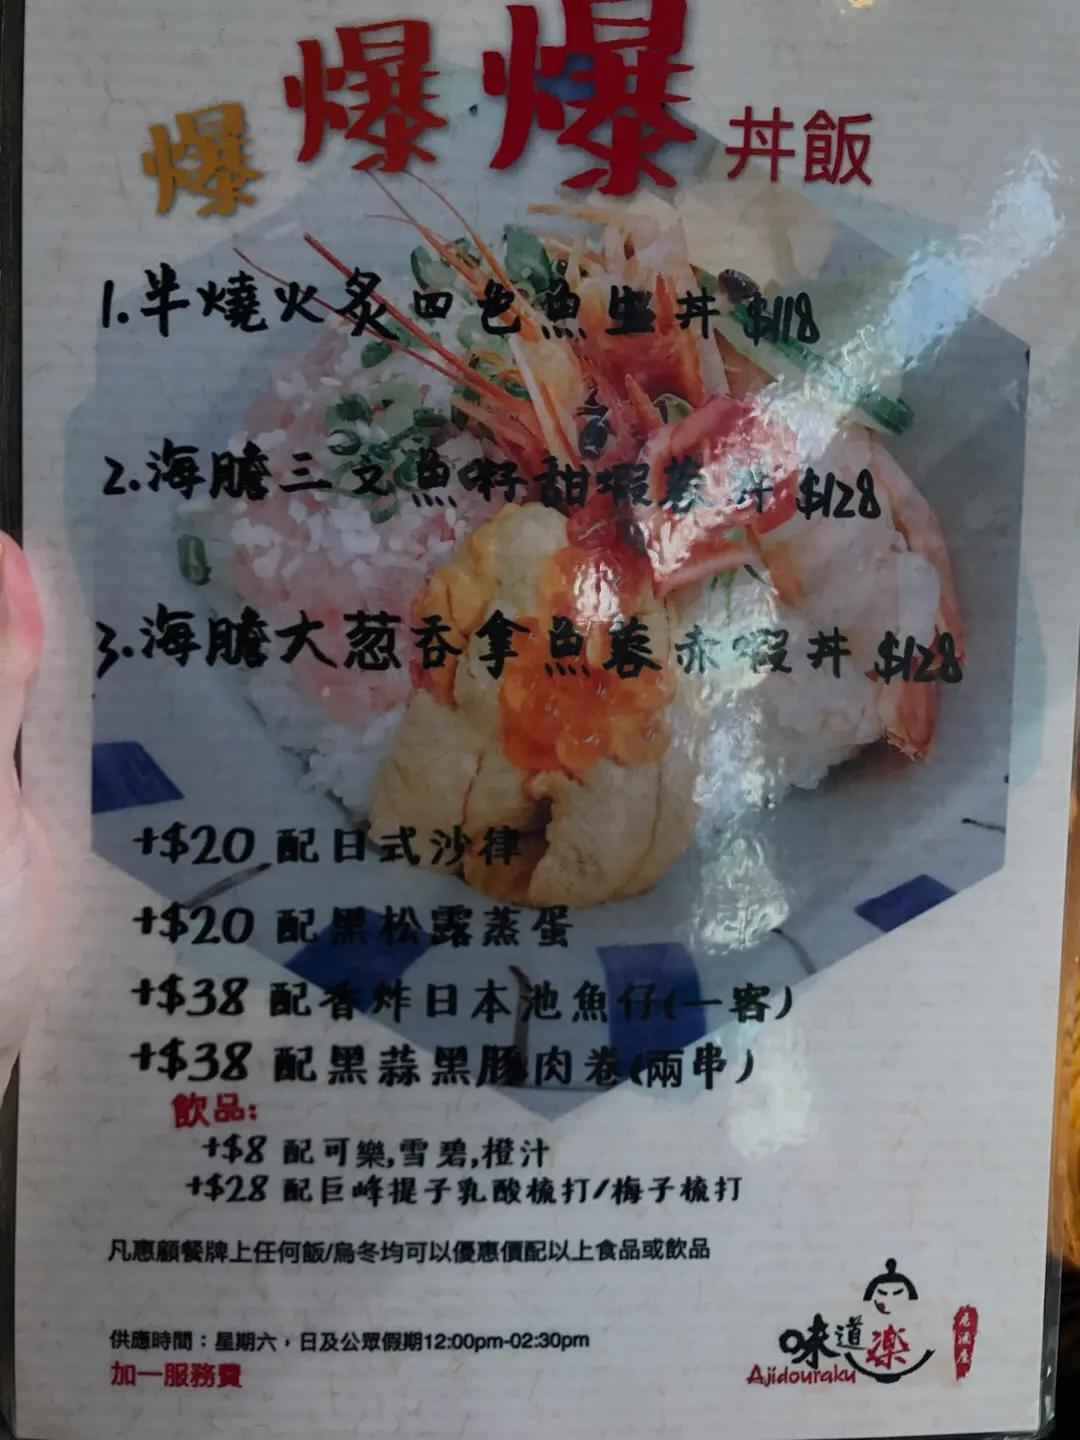 爆爆爆丼飯
1.半燒火炙四色魚生丼 $118
2.海膽三文魚籽甜蝦蓉丼 $128
3.海膽大葱吞拿魚蓉赤蝦丼 $128
+$20 配日式沙律
+$20 配黑松露蒸蛋
+$38 配香炸日本池魚仔(一客)
+$38 配黑蒜黑豚肉卷(兩串)
飲品:
+$8 配可樂,雪碧,橙汁
+$28 配巨峰提子乳酸梳打/梅子梳打
凡惠顧餐牌上任何飯/烏冬均可以優惠價配以上食品或飲品
供應時間：星期六，日及公眾假期12:00pm-02:30pm
加一服務費
味道楽
Ajidouraku
居酒屋